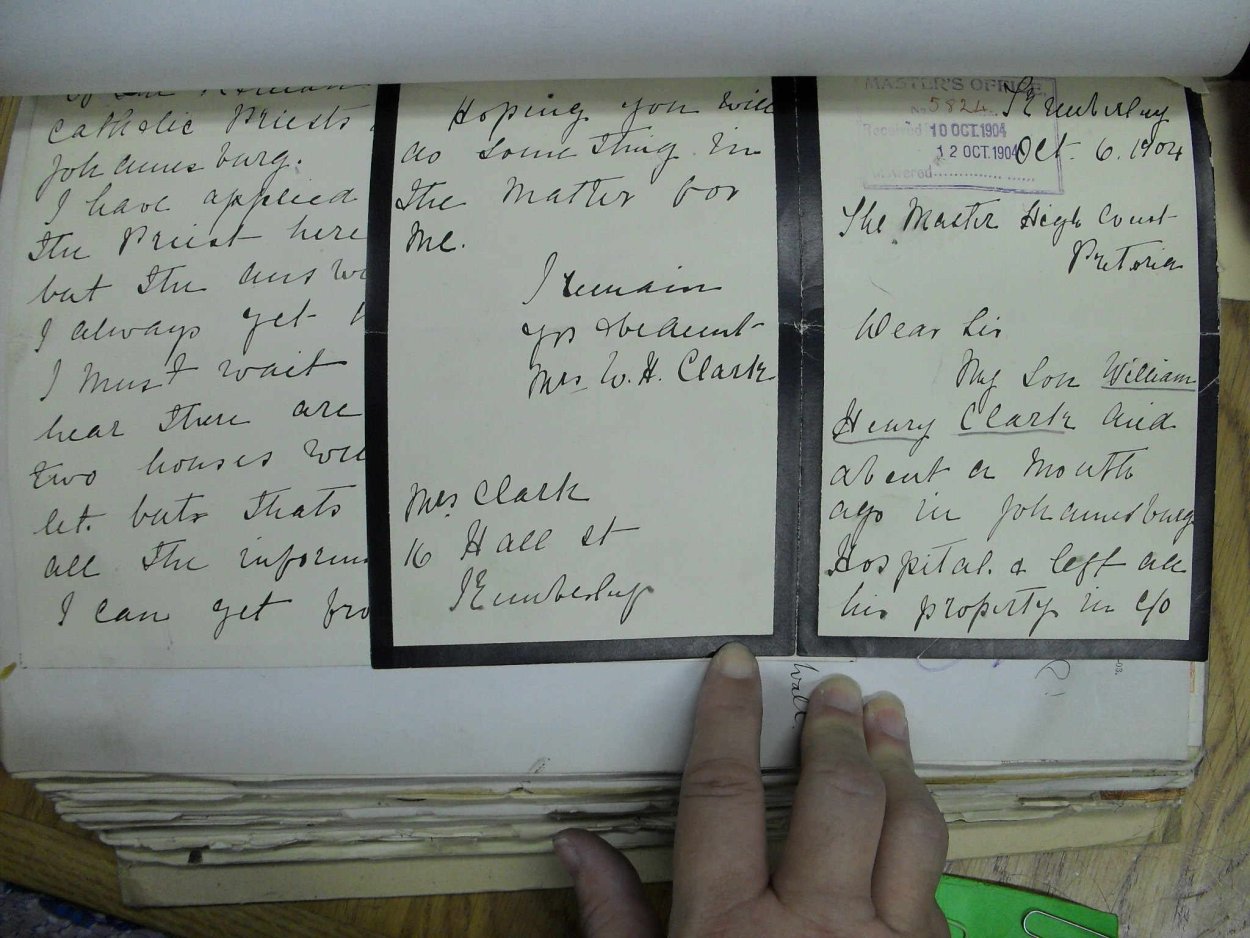 MASTER'S OFFICE,
No. 5824
Received 10 OCT.1904
12 OCT.1904
Kimberley
Oct. 6. 1904
The Master High Court
Pretoria
Dear Sir
My Son William
Henry Clark died
about a Month
ago in Johannesburg
Hospital. & left all
his property in c/o
Catholic Priests
Johannesburg.
I have applied
the Priest here
but the answ
I always get
I must wait
hear there are
two houses
let. but thats
all the inform
I can get fro
Hoping you will
do some thing in
the Matter for
Me.
I remain
yrs obedient
Mrs W. H. Clark
Mrs Clark
16 Hall st
Kimberley